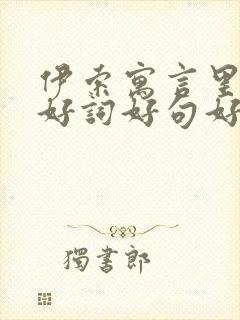 伊索寓言里
好詞好句好
獨書郎